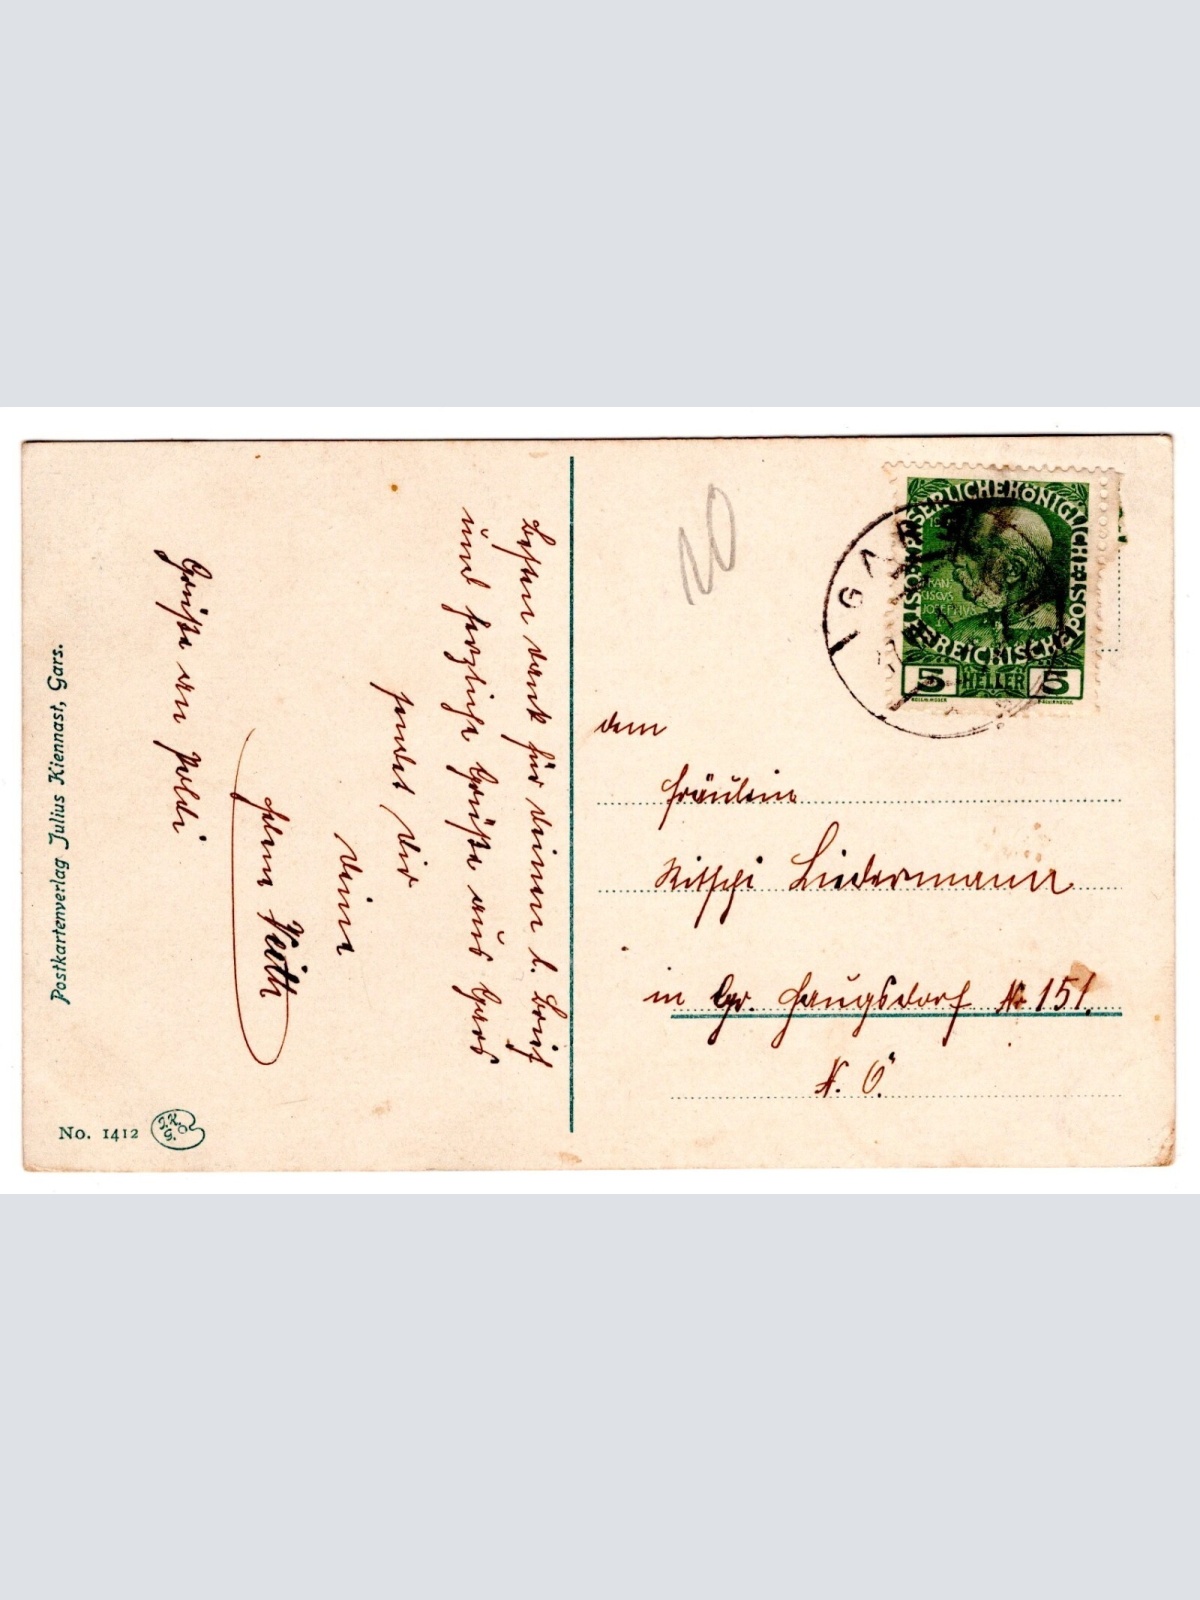 Besten Dank für deinen l. Brief
und herzliche Grüße aus Gars
sendet dir
deine
Grüße an Poldi
Postkartenverlag Julius Kiennast, Gars.
No. 1412
10
GARS
KAISERLICHE KÖNIGLICHE
ÖSTERREICHISCHE POST
FRAN
CISCVS
JOSEPHVS
5 HELLER 5
dem
Fräulein
Liedermann
in Gr. Haugsdorf No 151.
N. Ö.